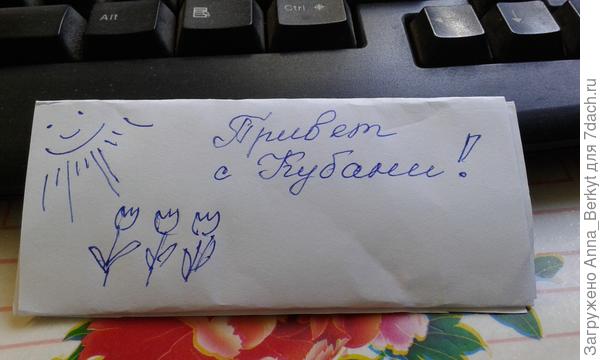 Alt
Ctrl
Привет
с Кубани!
Загружено Anna_Berkyt для 7dach.ru